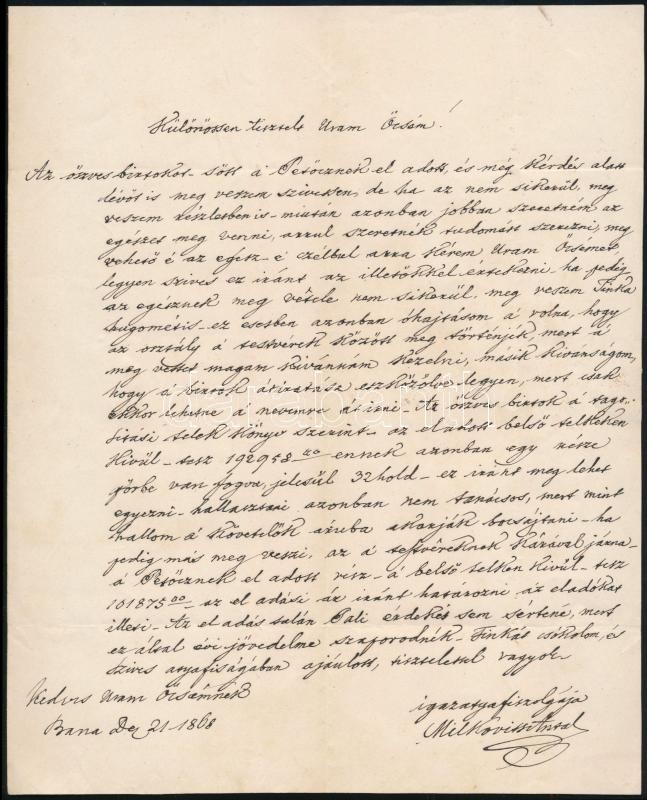 Különössen tisztelt Uram Öcsém!
Az öszves birtokot sőtt á Petőcznek el adott, és még kérdés alatt
lévőt is meg veszem szivessen, de ha az nem sikerül, meg
veszem részletben is – miután azonban jobban szeretném az
egészet meg venni, arrul szeretnék tudomást szerezni, meg
vehető é az egisz – é czélbul arra kérem Uram Öcsémet
legyen szives ez iránt az illetőkkel értekezni – ha pedig
az egésznek meg vétele nem sikerül, meg veszem Tinka
hugomét is – ez esetben azonban óhajtásom á volna, hogy
az osztály á testvérek között meg történjék, mert á
meg vettet magam kivánnám kezelni, másik kivánságom,
hogy á birtok átiratása eszközölve legyen, mert csak
ekkor lehetne á nevemre átirni – Az öszves birtok á tago-
sitási telek könyv szerint – az eladott belső telkeken
kivül – tesz 192958 ennek azonban egy része
pörbe van fogva, jelesül 32 hold – ez iránt meg lehet
egyezni – hallasztani azonban nem tanácsos, mert mint
hallom á követelők áruba akarják bocsájtani – ha
pedig más meg veszi, az á testvéreknek kárával járna –
á Petőcznek el adott rész – á belső telken kivül – tesz
101875 00 – az el adási ár iránt határozni az eladókat
illeti – Az el adás után Pali érdekét sem sértené, mert
ez által évi jövedelme szaporodnék – Tinkát csókolom, és
szives atyafiságában ajánlott, tisztelettel vagyok
Kedves Uram Öcsémnek
igaz atyafi szolgája
Bana De 21 1868
Milkovits Antal
darabanth